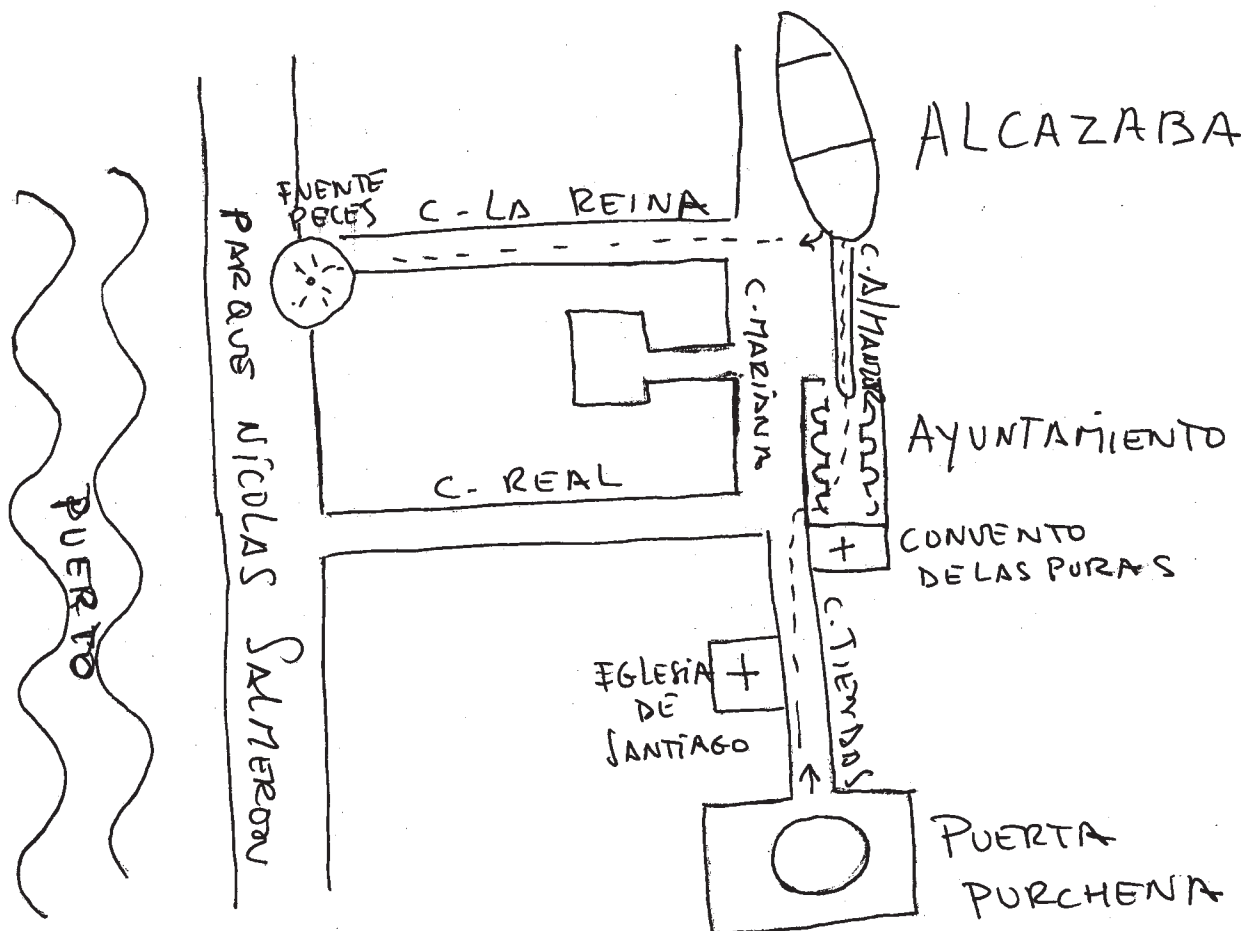 ALCAZABA
FUENTE
PECES
C - LA REINA
PARQUE NICOLAS SALMERON
C. AlMANZOR
C. MARIANA
AYUNTAMIENTO
C. REAL
PUERTO
CONVENTO
DE LAS PURAS
C. TIENDAS
IGLESIA
DE
SANTIAGO
PUERTA
PURCHENA